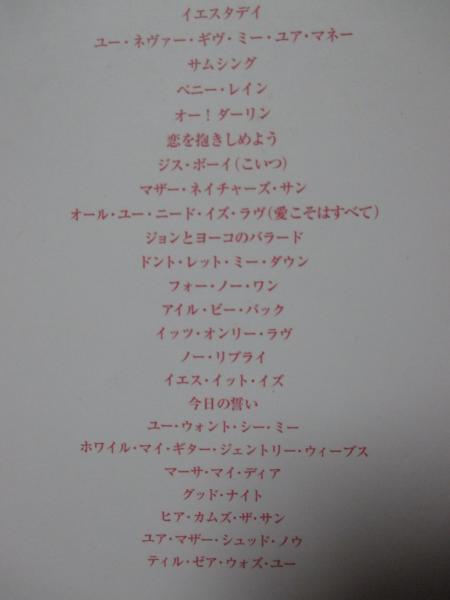 イエスタデイ
ユー・ネヴァー・ギヴ・ミー・ユア・マネー
サムシング
ペニー・レイン
オー！ダーリン
恋を抱きしめよう
ジス・ボーイ（こいつ）
マザー・ネイチャーズ・サン
オール・ユー・ニード・イズ・ラヴ（愛こそはすべて）
ジョンとヨーコのバラード
ドント・レット・ミー・ダウン
フォー・ノー・ワン
アイル・ビー・バック
イッツ・オンリー・ラヴ
ノー・リプライ
イエス・イット・イズ
今日の誓い
ユー・ウォント・シー・ミー
ホワイル・マイ・ギター・ジェントリー・ウィープス
マーサ・マイ・ディア
グッド・ナイト
ヒア・カムズ・ザ・サン
ユア・マザー・シュッド・ノウ
ティル・ゼア・ウォズ・ユー